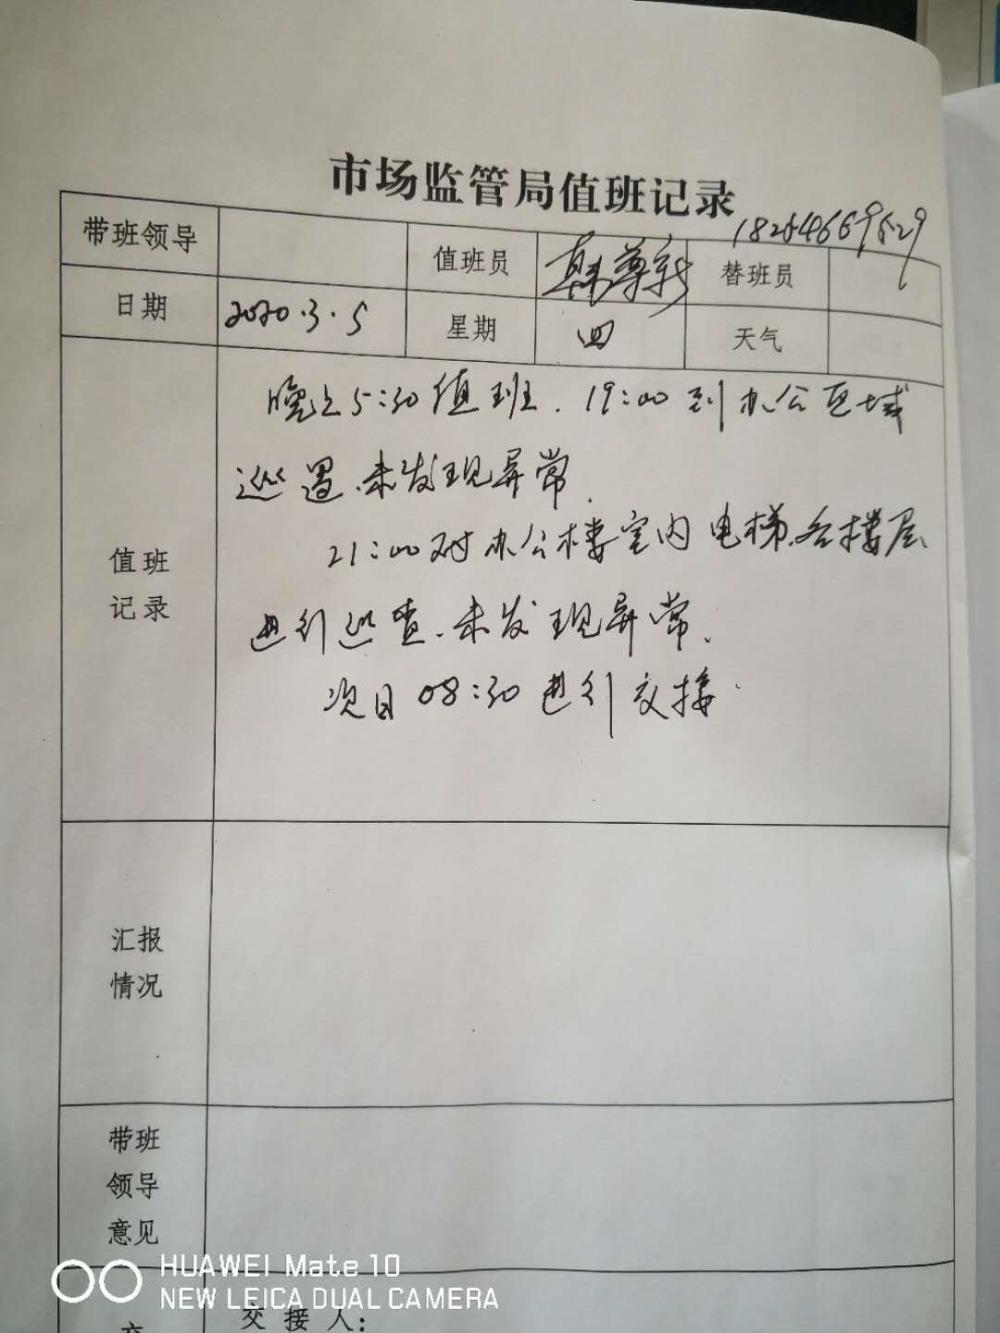 市场监管局值班记录
18254669529
带班领导 值班员 韩尊新 替班员
日期 2020.3.5 星期 四 天气
晚上5:30值班.19:00到办公区域
巡逻.未发现异常.
21:00对办公楼室内电梯.各楼层
进行巡查.未发现异常.
次日08:30进行交接.
值班
记录
汇报
情况
带班
领导
意见
HUAWEI Mate 10
NEW LEICA DUAL CAMERA
交接人: